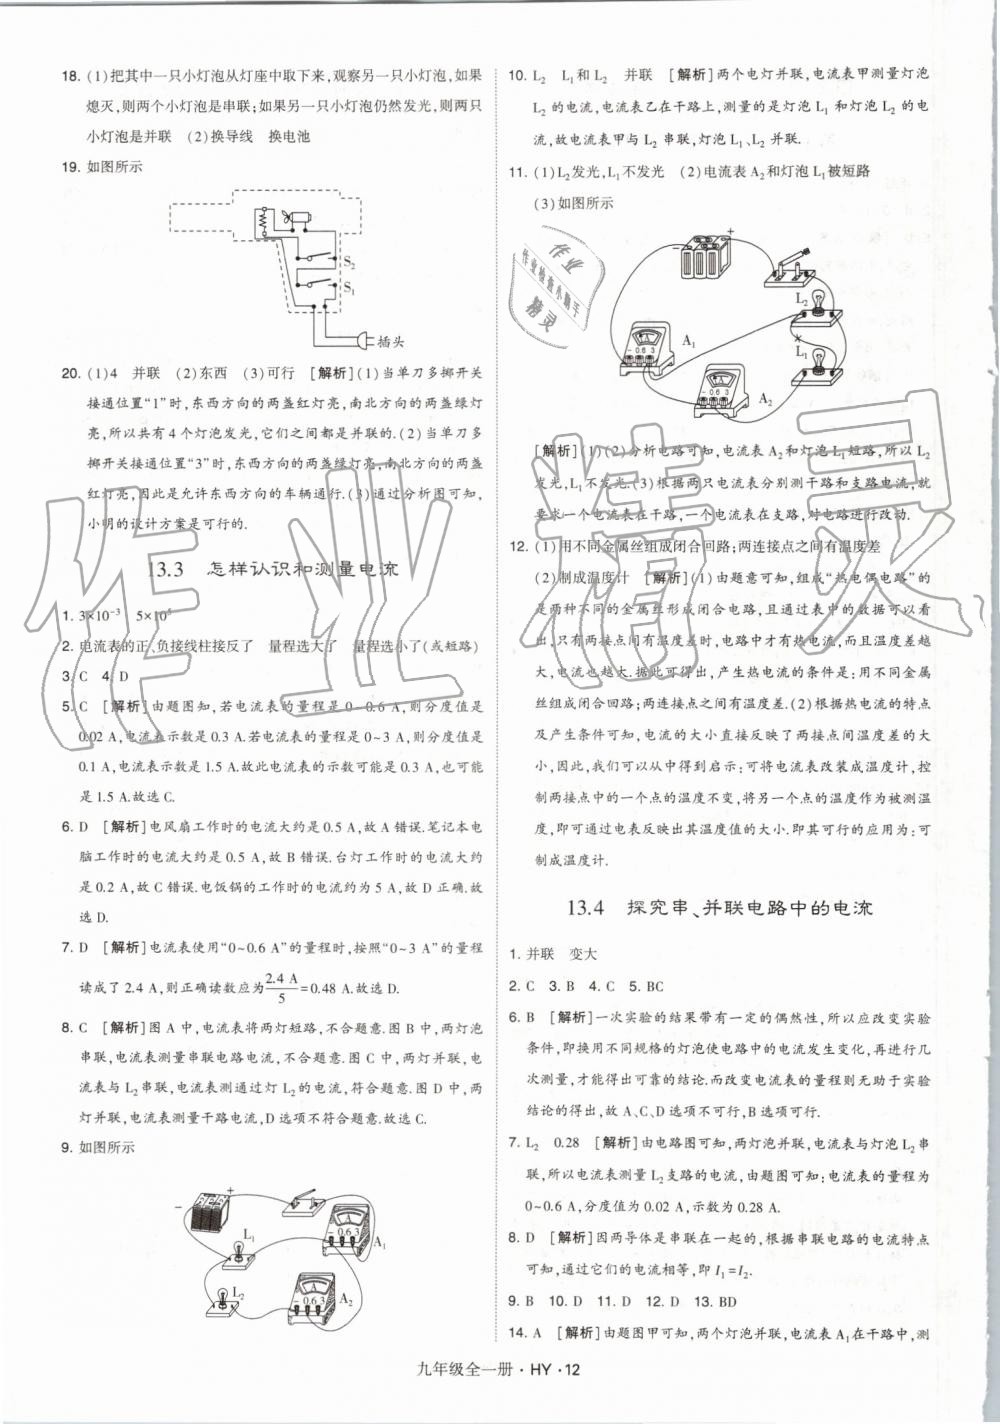 18. (1)把其中一只小灯泡从灯座中取下来,观察另一只小灯泡,如果
熄灭,则两个小灯泡是串联;如果另一只小灯泡仍然发光,则两只
小灯泡是并联　(2)换导线　换电池
19. 如图所示
S₂
S₁
插头
20. (1)4　并联　(2)东西　(3)可行　[解析](1)当单刀多掷开关
接通位置“1”时,东西方向的两盏红灯亮,南北方向的两盏绿灯
亮,所以共有4个灯泡发光,它们之间都是并联的.(2)当单刀多
掷开关接通位置“3”时,东西方向的两盏绿灯亮,南北方向的两盏
红灯亮,因此是允许东西方向的车辆通行.(3)通过分析图可知,
小明的设计方案是可行的.
13.3　怎样认识和测量电流
1. 3×10⁻³　5×10⁵
2. 电流表的正、负接线柱接反了　量程选大了　量程选小了(或短路)
3. C　4. D
5. C　[解析]由题图知,若电流表的量程是0~0.6 A,则分度值是
0.02 A,电流表示数是0.3 A.若电流表的量程是0~3 A,则分度值是
0.1 A,电流表示数是1.5 A.故此电流表的示数可能是0.3 A,也可能
是1.5 A.故选C.
6. D　[解析]电风扇工作时的电流大约是0.5 A,故A错误.笔记本电
脑工作时的电流大约是0.5 A,故B错误.台灯工作时的电流大约
是0.2 A,故C错误.电饭锅的工作时的电流约为5 A,故D正确.故
选D.
7. D　[解析]电流表使用“0~0.6 A”的量程时,按照“0~3 A”的量程
读成了2.4 A,则正确读数应为2.4 A/5=0.48 A.故选D.
8. C　[解析]图A中,电流表将两灯短路,不合题意.图B中,两灯泡
串联,电流表测量串联电路电流,不合题意.图C中,两灯并联,电
流表与L₂串联,电流表测通过灯L₂的电流,符合题意.图D中,两
灯并联,电流表测量干路电流,D选项不符合题意.故选C.
9. 如图所示
−
+
L₁
A
−0.6 3
A₁
L₂
A
−0.6 3
A₂
10. L₂　L₁和L₂　并联　[解析]两个电灯并联,电流表甲测量灯泡
L₂的电流,电流表乙在干路上,测量的是灯泡L₁和灯泡L₂的电
流,故电流表甲与L₂串联,灯泡L₁、L₂并联.
11. (1)L₂发光,L₁不发光　(2)电流表A₂和灯泡L₁被短路
(3)如图所示
−
+
L₂
×
L₁
A
−0.6 3
A₁
A
A₂
[解析](1)(2)分析电路可知,电流表A₂和灯泡L₁短路,所以L₂
发光,L₁不发光.(3)根据两只电流表分别测干路和支路电流,就
要求一个电流表在干路,一个电流表在支路,对电路进行改动.
12. (1)用不同金属丝组成闭合回路;两连接点之间有温度差
(2)制成温度计　[解析](1)由题意可知,组成“热电偶电路”的
是两种不同的金属丝形成闭合电路,且通过表中的数据可以看
出,只有两接点间有温度差时,电路中才有热电流,而且温度差越
大,电流也越大.据此可得出,产生热电流的条件是:用不同金属
丝组成闭合回路;两连接点之间有温度差.(2)根据热电流的特点
及产生条件可知,电流的大小直接反映了两接点间温度差的大
小,因此,我们可以从中得到启示:可将电流表改装成温度计,控
制两接点中的一个点的温度不变,将另一个点的温度作为被测温
度,即可通过电表反映出其温度值的大小.即其可行的应用为:可
制成温度计.
13.4　探究串、并联电路中的电流
1. 并联　变大
2. C　3. B　4. C　5. BC
6. B　[解析]一次实验的结果带有一定的偶然性,所以应改变实验
条件,即换用不同规格的灯泡使电路中的电流发生变化,再进行几
次测量,才能得出可靠的结论.而改变电流表的量程则无助于实验
结论的得出,故A、C、D选项不可行,B选项可行.
7. L₂　0.28　[解析]由电路图可知,两灯泡并联,电流表与灯泡L₂串
联,所以电流表测量L₂支路的电流,由题图可知:电流表的量程为
0~0.6 A,分度值为0.02 A,示数为0.28 A.
8. D　[解析]因两导体是串联在一起的,根据串联电路的电流特点
可知,通过它们的电流相等,即I₁=I₂.
9. B　10. D　11. D　12. D　13. BD
14. A　[解析]由题图甲可知,两个灯泡并联,电流表A₁在干路中,测
九年级全一册·HY·12
作业
作业检查小助手
精灵
作业精灵